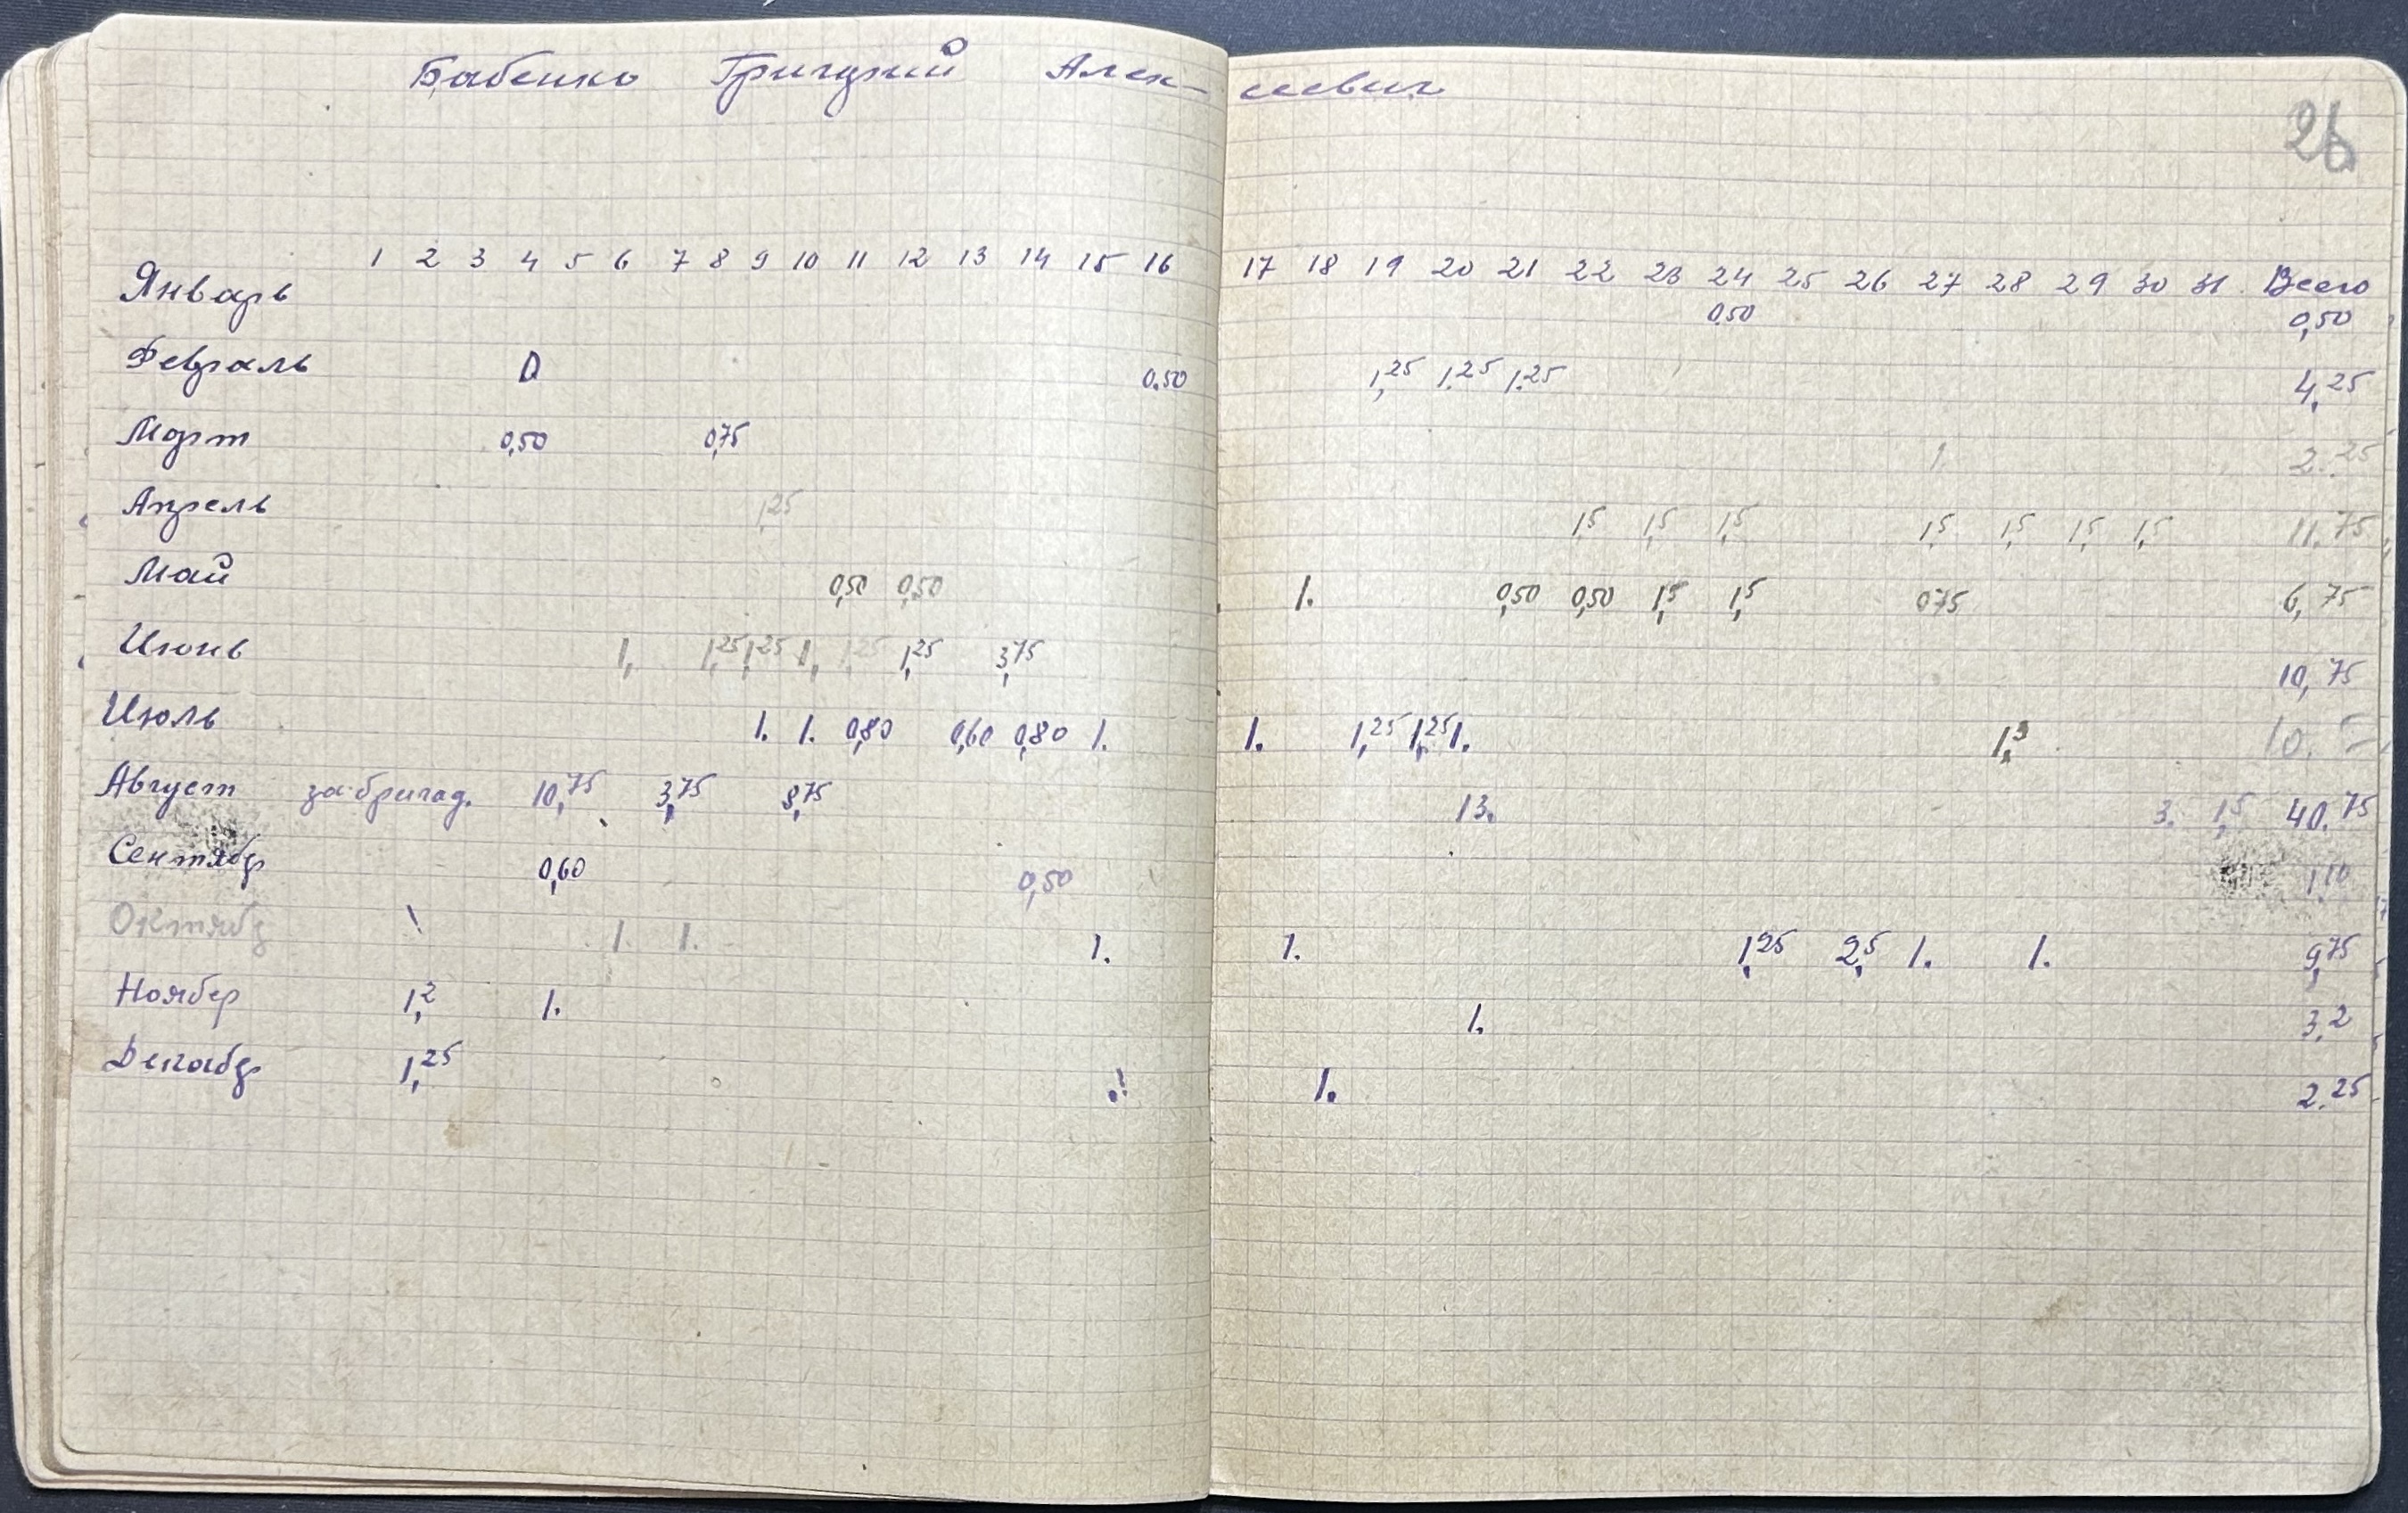 Бабенко Григорий Алексеевич
26
1 2 3 4 5 6 7 8 9 10 11 12 13 14 15 16 17 18 19 20 21 22 23 24 25 26 27 28 29 30 31 Всего
Январь 0,50 0,50
Февраль 0 0.50 1,25 1.25 1.25 4,25
Март 0,50 0,75 1. 2.25
Апрель 1,25 1,5 1,5 1,5 1,5 1,5 1,5 1,5 11.75
Май 0,50 0,50 1. 0,50 0,50 1,5 1,5 075 6,75
Июнь 1, 1,25 1,25 1, 1,25 1,25 3,75 10,75
Июль 1. 1. 0,80 0,60 0,80 1. 1. 1,25 1,25 1. 1,3 10.
Август за бригад. 10,75 3,75 8,75 13. 3. 1,5 40.75
Сентябр 0,60 0,50 1,10
Октябр 1 1. 1. 1. 1. 1,25 2,5 1. 1. 9,75
Ноябер 1,2 1. 1. 3.2
Декабр 1,25 1. 2.25